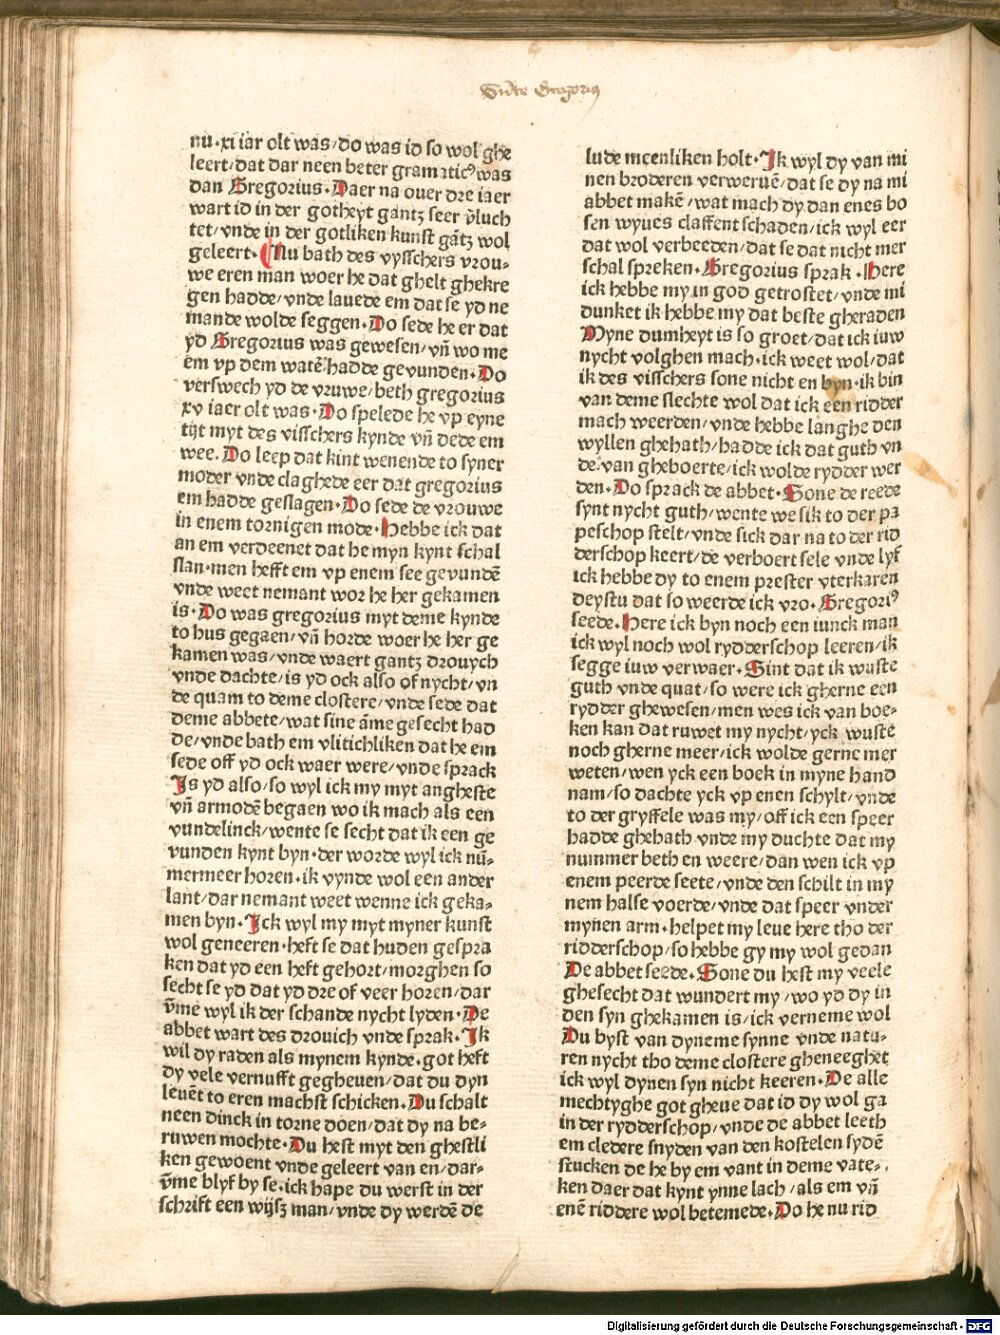 Sūte Gregorius
nu·xi iar olt was/do was id so wol ghe
leert/dat dar neen beter gramaticꝰ was
dan Gregorius·Daer na ouer dre iaer
wart id in der gotheyt gantz seer v̄luch
tet/vnde in der gotliken kunst gātz wol
geleert·Nu bath des vysschers vrou⸗
we eren man woer he dat ghelt ghekre
gen hadde/vnde lauede em dat se yd ne
mande wolde seggen·Do sede he er dat
yd Gregorius was gewesen/vn̄ wo me
em vp dem watē hadde gevunden·Do
verswech yd de vruwe/beth gregorius
xv iaer olt was·Do spelede he vp eyne
tijt myt des visschers kynde vn̄ dede em
wee.Do leep dat kint wenende to syner
moder vnde claghede eer dat gregorius
em hadde geslagen·Do sede de vrouwe
in enem tornigen mode·Hebbe ick dat
an em verdeenet dat he myn kynt schal
slan·men hefft em vp enem see gevundē
vnde weet nemant wor he her gekamen
is·Do was gregorius myt deme kynde
to hus gegaen/vn̄ horde woer he her ge
kamen was/vnde waert gantz drouych
vnde dachte/is yd ock also of nycht/vn
de quam to deme clostere/vnde sede dat
deme abbete/wat sine āme gesecht had
de/vnde bath em vlitichliken dat he em
sede off yd ock waer were/vnde sprack
Is yd also/so wyl ick my myt angheste
vn̄ armodē begaen wo ik mach als een
vundelinck/wente se secht dat ik een ge
vunden kynt byn·der worde wyl ick nū⸗
mermeer horen·ik vynde wol een ander
lant/dar nemant weet wenne ick geka⸗
men byn·Ick wyl my myt myner kunst
wol geneeren·heft se dat huden gespra
ken dat yd een heft gehort/morghen so
secht se yd dat yd dre of veer horen/dar
v̄me wyl ik der schande nycht lyden·De
abbet wart des drouich vnde sprak·Ik
wil dy raden als mynem kynde·got heft
dy vele vernufft gegheuen/dat du dyn
leuēt to eren machst schicken·Du schalt
neen dinck in torne doen/dat dy na be⸗
ruwen mochte·Du hest myt den ghestli
ken gewoent vnde geleert van en/dar⸗
v̄me blyf by se·ick hape du werst in der
schrift een wijsz man/vnde dy werdē de
lude meenliken holt·Ik wyl dy van mi
nen broderen verweruē/dat se dy na mi
abbet makē/wat mach dy dan enes bo
sen wyues claffent schaden/ick wyl eer
dat wol verbeeden/dat se dat nicht mer
schal spreken·Gregorius sprak·Here
ick hebbe my in god getrostet/vnde mi
dunket ik hebbe my dat beste gheraden
Myne dumheyt is so groet/dat ick iuw
nycht volghen mach·ick weet wol/dat
ik des visschers sone nicht en byn·ik bin
van deme slechte wol dat ick een ridder
mach weerden/vnde hebbe langhe den
wyllen ghehath/hadde ick dat guth vn
de van gheboerte/ick wolde rydder wer
den·Do sprack de abbet·Sone de reede
synt nycht guth/wente we sik to der pa
peschop stelt/vnde sick dar na to der rid
derschop keert/de verboert sele vnde lyf
ick hebbe dy to enem prester vterkaren
deystu dat so weerde ick vro·Gregoriꝰ
seede·Here ick byn noch een iunck man
ick wyl noch wol rydderschop leeren/ik
segge iuw verwaer·Sint dat ik wuste
guth vnde quat/so were ick gherne een
rydder ghewesen/men wes ick van boe⸗
ken kan dat ruwet my nycht/yck wuste
noch gherne meer/ick wolde gerne mer
weten/wen yck een boek in myne hand
nam/so dachte yck vp enen schylt/vnde
to der gryffele was my/off ick een speer
hadde ghehath vnde my duchte dat my
nummer beth en weere/dan wen ick vp
enem peerde seete/vnde den schilt in my
nem halse voerde/vnde dat speer vnder
mynen arm·helpet my leue here tho der
ridderschop/so hebbe gy my wol gedan
De abbet seede·Sone du hest my veele
ghesecht dat wundert my/wo yd dy in
den syn ghekamen is/ick verneme wol
Du byst van dyneme synne vnde natu⸗
ren nycht tho deme clostere gheneeghet
ick wyl dynen syn nicht keeren·De alle
mechtyghe got gheue dat id dy wol ga
in der rydderschop/vnde de abbet leeth
em cledere snyden van den kostelen sydē
stucken de he by em vant in deme vate⸗
ken daer dat kynt ynne lach/als em vn̄
enē riddere wol betemede·Do he nu rid
Digitalisierung gefördert durch die Deutsche Forschungsgemeinschaft - DFG